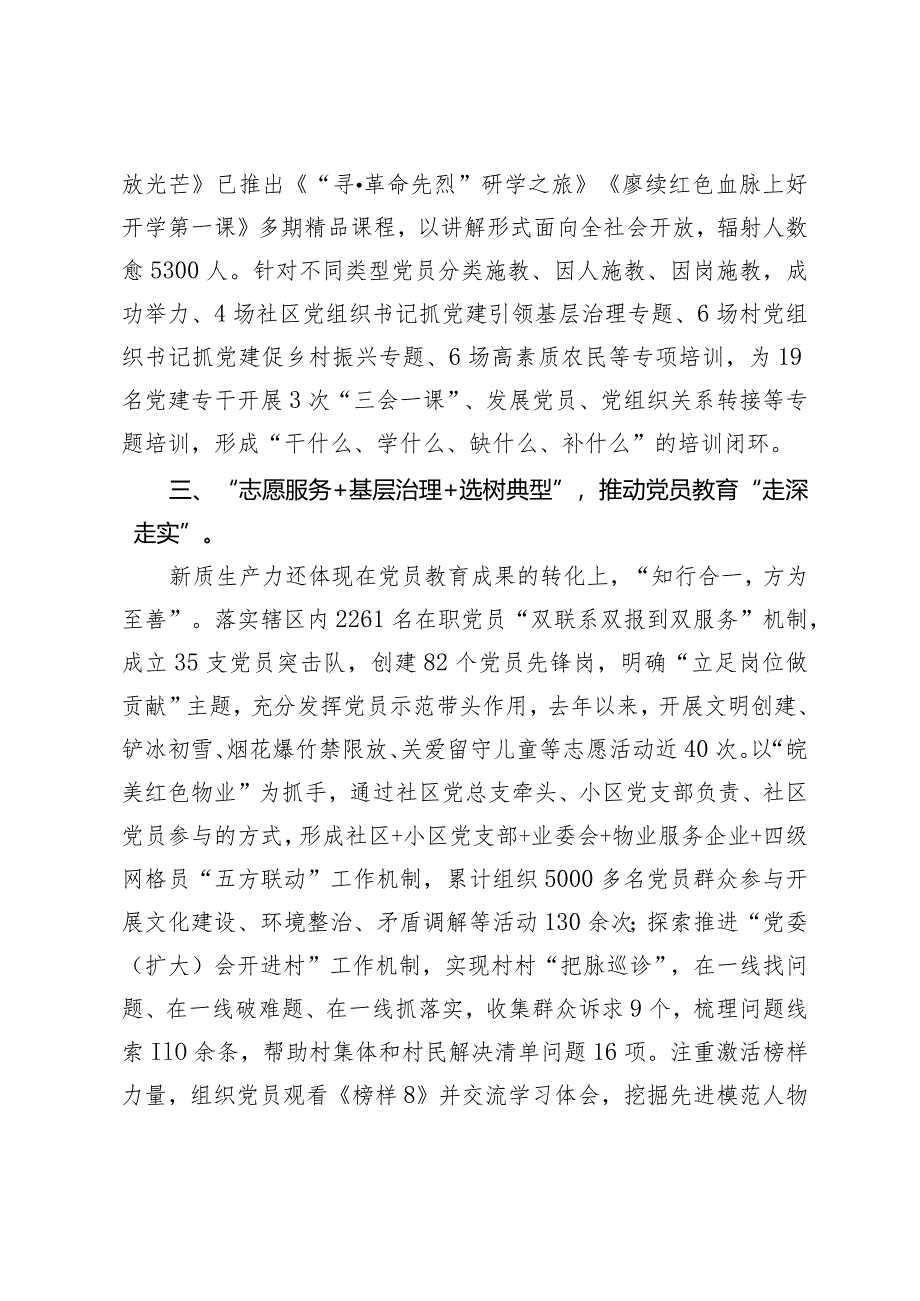 放光芒》已推出《“寻•革命先烈”研学之旅》《廖续红色血脉上好
开学第一课》多期精品课程，以讲解形式面向全社会开放，辐射人数
愈5300人。针对不同类型党员分类施教、因人施教、因岗施教，成
功举力、4场社区党组织书记抓党建引领基层治理专题、6场村党组
织书记抓党建促乡村振兴专题、6场高素质农民等专项培训，为19
名党建专干开展3次“三会一课”、发展党员、党组织关系转接等专
题培训，形成“干什么、学什么、缺什么、补什么”的培训闭环。
三、“志愿服务+基层治理+选树典型”，推动党员教育“走深
走实”。
新质生产力还体现在党员教育成果的转化上，“知行合一，方为
至善”。落实辖区内2261名在职党员“双联系双报到双服务”机制，
成立35支党员突击队，创建82个党员先锋岗，明确“立足岗位做
贡献”主题，充分发挥党员示范带头作用，去年以来，开展文明创建、
铲冰初雪、烟花爆竹禁限放、关爱留守儿童等志愿活动近40次。以“皖
美红色物业”为抓手，通过社区党总支牵头、小区党支部负责、社区
党员参与的方式，形成社区+小区党支部+业委会+物业服务企业+四级
网格员“五方联动”工作机制，累计组织5000多名党员群众参与开
展文化建设、环境整治、矛盾调解等活动130余次；探索推进“党委
（扩大）会开进村”工作机制，实现村村“把脉巡诊”，在一线找问
题、在一线破难题、在一线抓落实，收集群众诉求9个，梳理问题线
索I10余条，帮助村集体和村民解决清单问题16项。注重激活榜样
力量，组织党员观看《榜样8》并交流学习体会，挖掘先进模范人物